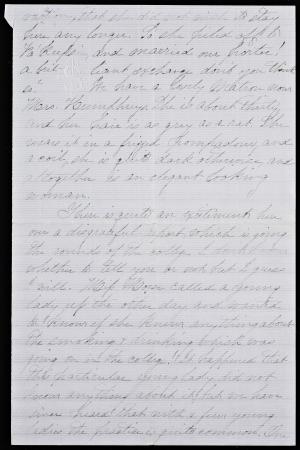 that she did not wish to stay
here any longer. So she picked off &
and married our
a brilliant exchange don't you think
so." We have a lovely Matron now
Mrs. Humphreys. She is about thirty
and her hair is as grey as a rat. She
wears it in a frizzed Pompadour and
a coil, she is quite dark otherwise and
altogether is an elegant looking
woman.
There is quite an excitement here
over a disgraceful report which is going
the rounds of the college. I don't know
whether to tell you or not but I guess
I will. called a young
lady up the other day and wanted
to know if she knew anything about
the smoking & drinking which was
going on in the college! It happened that
this particular young lady did not
know anything about it but we have
since heard that with a few young
ladies the practice is quite common. The